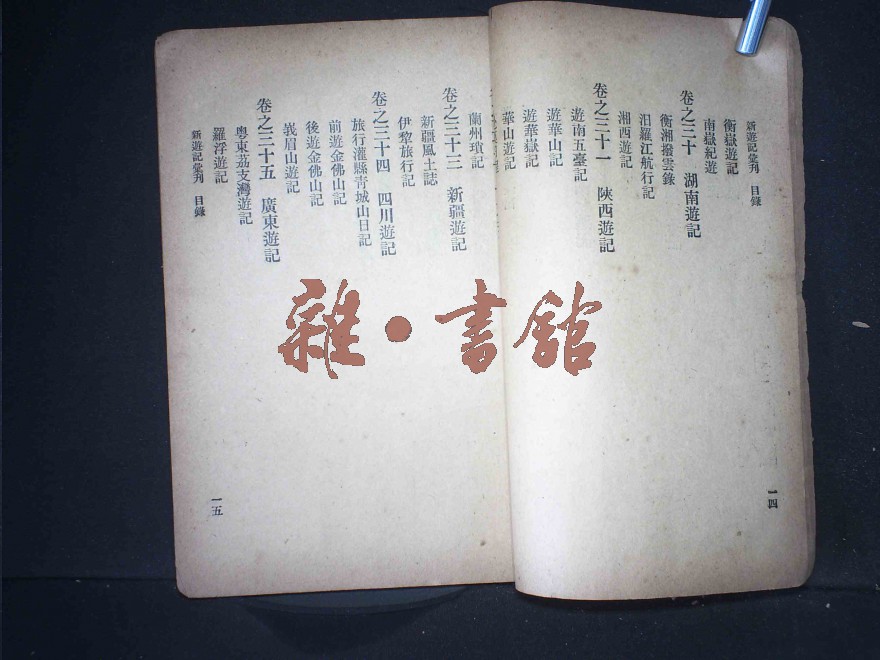 新遊記彙刊 目錄
衡嶽遊記
南嶽紀遊
卷之三十 湖南遊記
衡湘撥雲錄
汨羅江航行記
湘西遊記
卷之三十一 陝西遊記
遊南五臺記
遊華山記
遊華嶽記
華山遊記
一四
蘭州瑣記
卷之三十三 新疆遊記
新疆風土誌
伊犂旅行記
卷之三十四 四川遊記
旅行灌縣靑城山日記
前遊金佛山記
後遊金佛山記
峩眉山遊記
卷之三十五 廣東遊記
粤東茘支灣遊記
羅浮遊記
新遊記彙刊 目錄
一五
雜•書館